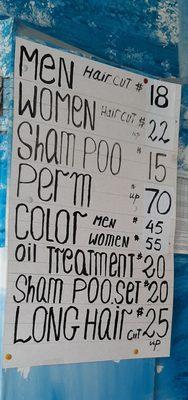 MEN HairCUT $ 18
WOMEN HairCUT $ 22
Sham POO $ 15
Perm $ up 70
COLOR MEN $ 45
WOMEN $ 55
OiL TreaTmenT $20
Sham POO.SeT $20
LONG Hair $25
CUT up